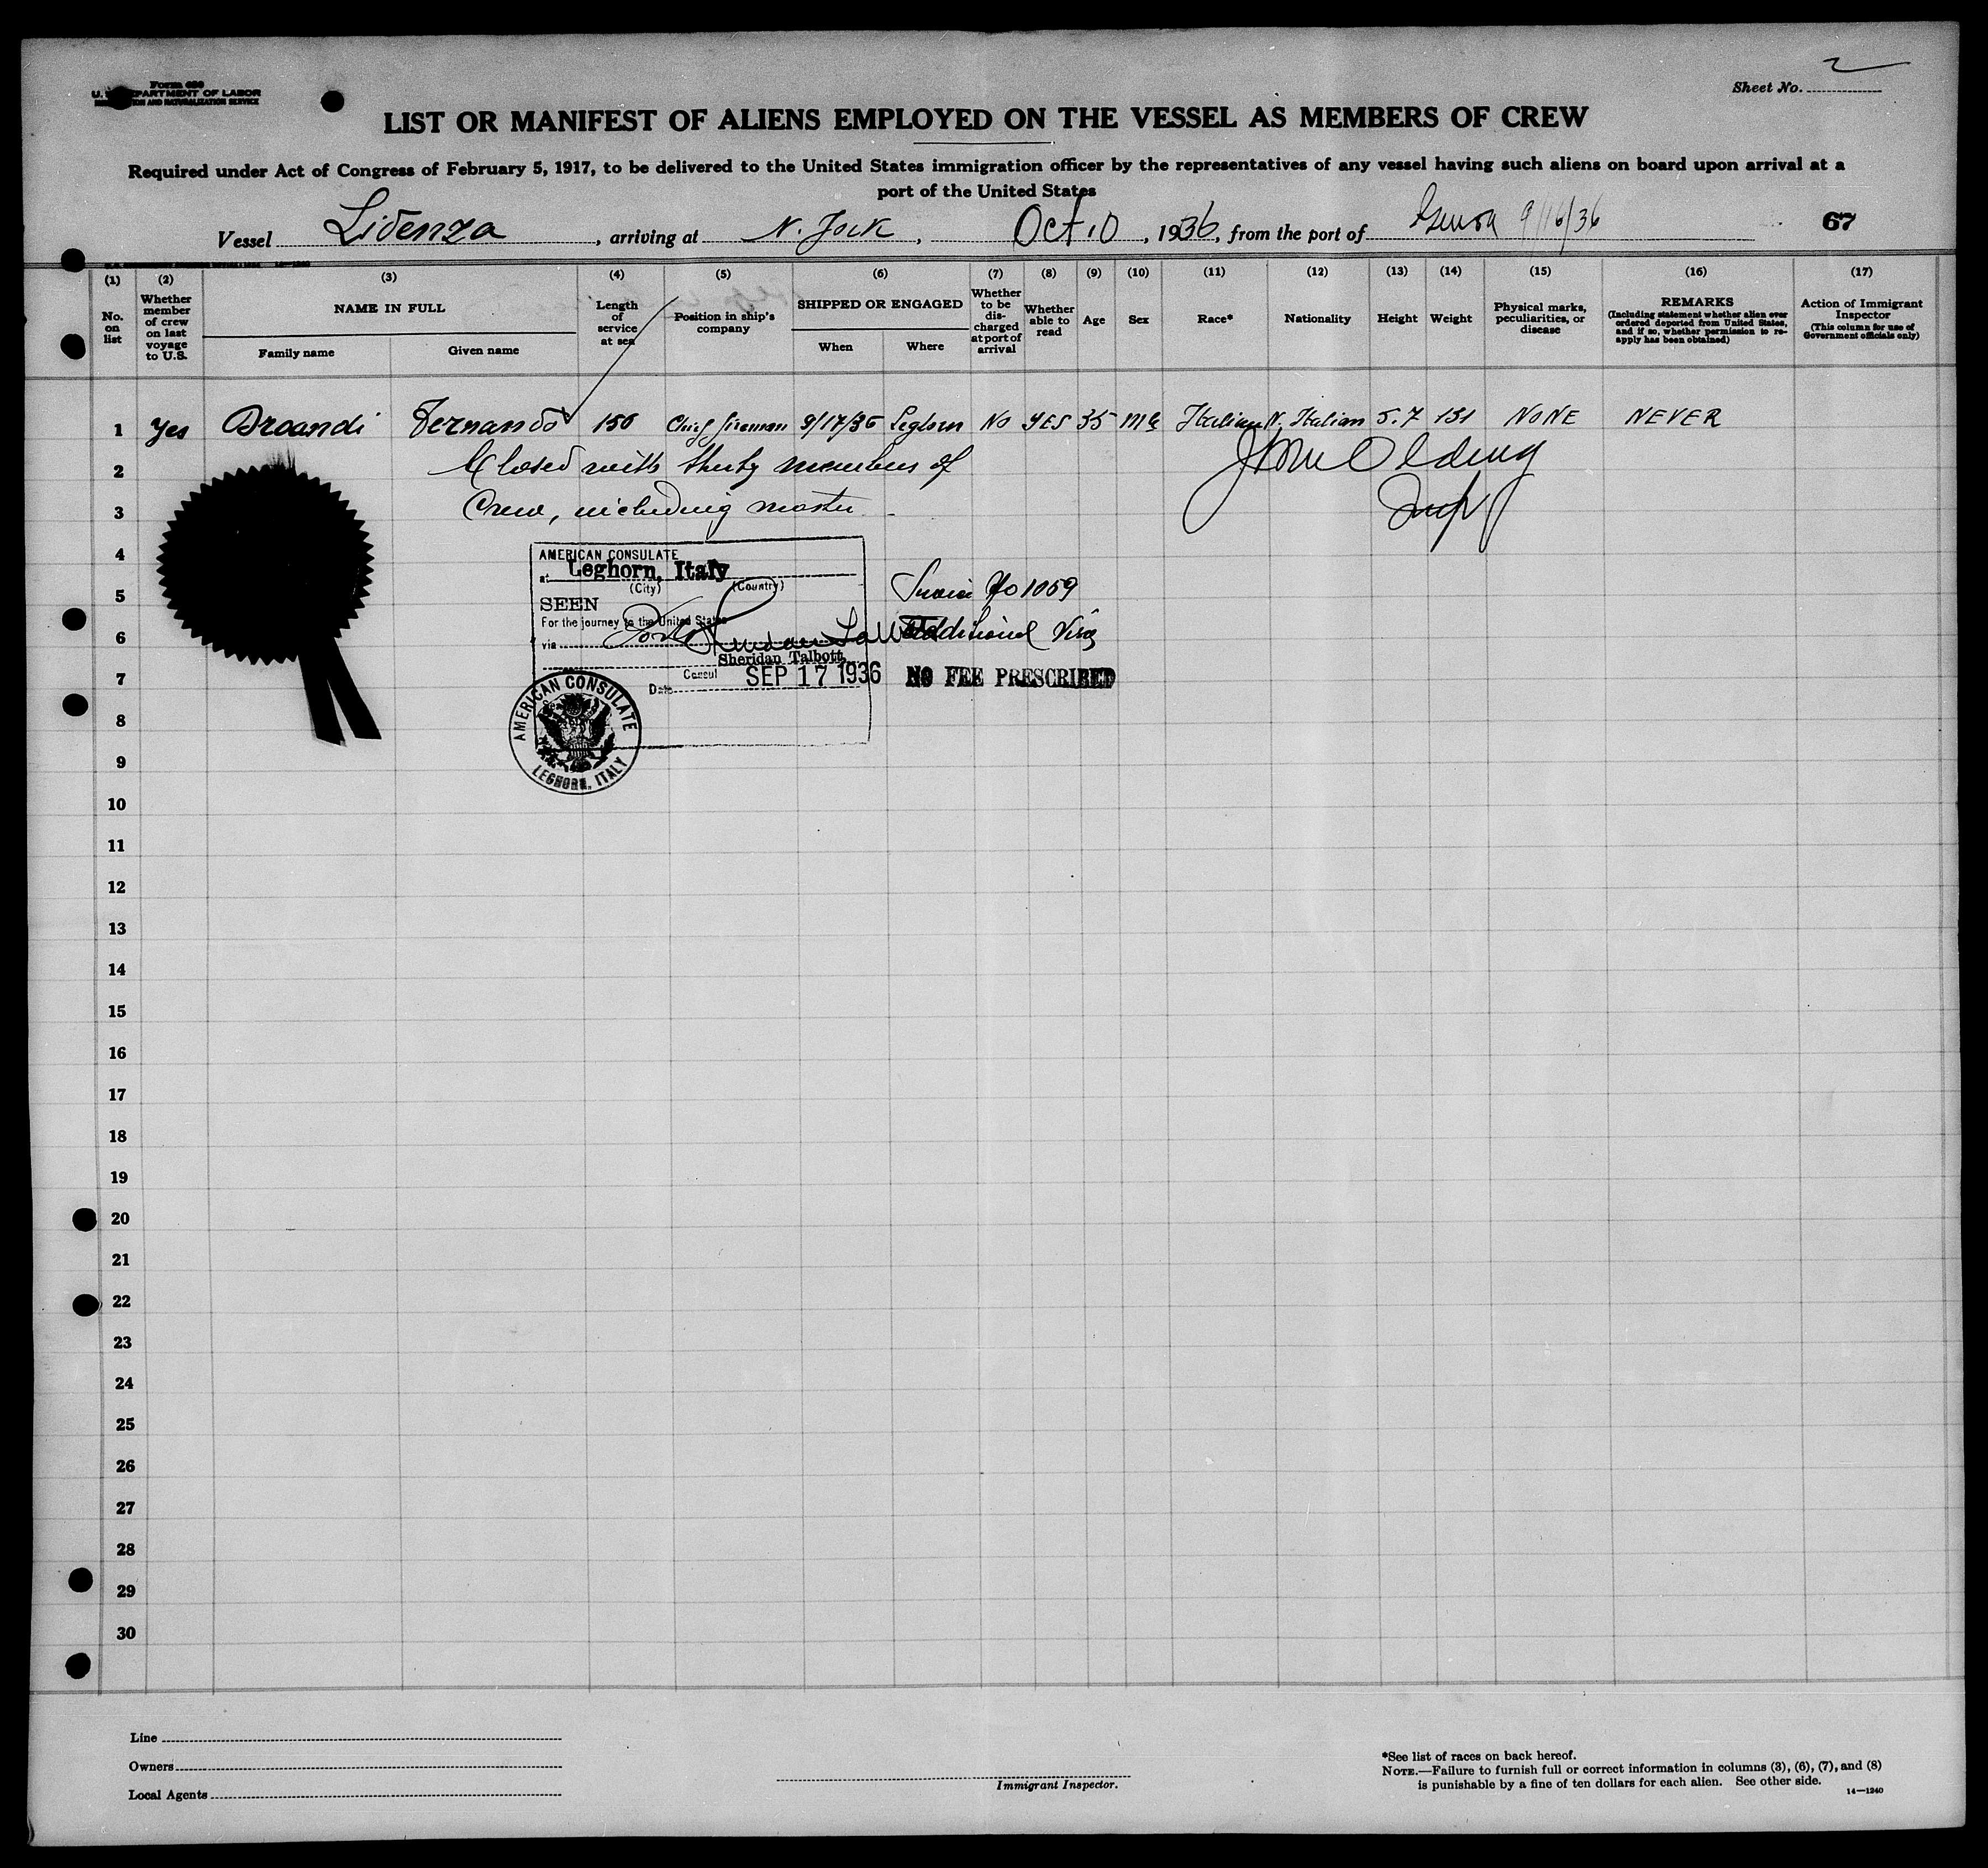 Form 680
U. S. DEPARTMENT OF LABOR
IMMIGRATION AND NATURALIZATION SERVICE
Sheet No. 2
LIST OR MANIFEST OF ALIENS EMPLOYED ON THE VESSEL AS MEMBERS OF CREW
Required under Act of Congress of February 5, 1917, to be delivered to the United States immigration officer by the representatives of any vessel having such aliens on board upon arrival at a
port of the United States
Vessel Lidenza, arriving at N. York, Oct. 10, 1936, from the port of Genoa 9/16/36
67
(1) (2) (3) (4) (5) (6) (7) (8) (9) (10) (11) (12) (13) (14) (15) (16) (17)
No. on list
Whether member of crew on last voyage to U.S.
NAME IN FULL
Family name
Given name
Length of service at sea
Position in ship's company
SHIPPED OR ENGAGED
When
Where
Whether to be discharged at port of arrival
Whether able to read
Age
Sex
Race*
Nationality
Height
Weight
Physical marks, peculiarities, or disease
REMARKS
(Including statement whether alien ever ordered deported from United States, and if so, whether permission to reapply has been obtained)
Action of Immigrant Inspector
(This column for use of Government officials only)
1 Yes Fernando 150 Chief fireman 9/17/36 Leghorn No YES 35 Italian N. Italian 5.7 131 NONE NEVER
2 Closed with thirty members of
3 Crew, including master
4
AMERICAN CONSULATE
at Leghorn, Italy
(City) (Country)
5
SEEN
No 1059
For the journey to the United States
6
via
Additional Visa
Sheridan Talbott
7
Consul
Date SEP 17 1936
NO FEE PRESCRIBED
AMERICAN CONSULATE
LEGHORN, ITALY
8
9
10
11
12
13
14
15
16
17
18
19
20
21
22
23
24
25
26
27
28
29
30
Line
Owners
Local Agents
Immigrant Inspector.
*See list of races on back hereof.
NOTE.—Failure to furnish full or correct information in columns (3), (6), (7), and (8)
is punishable by a fine of ten dollars for each alien. See other side.
14—1240